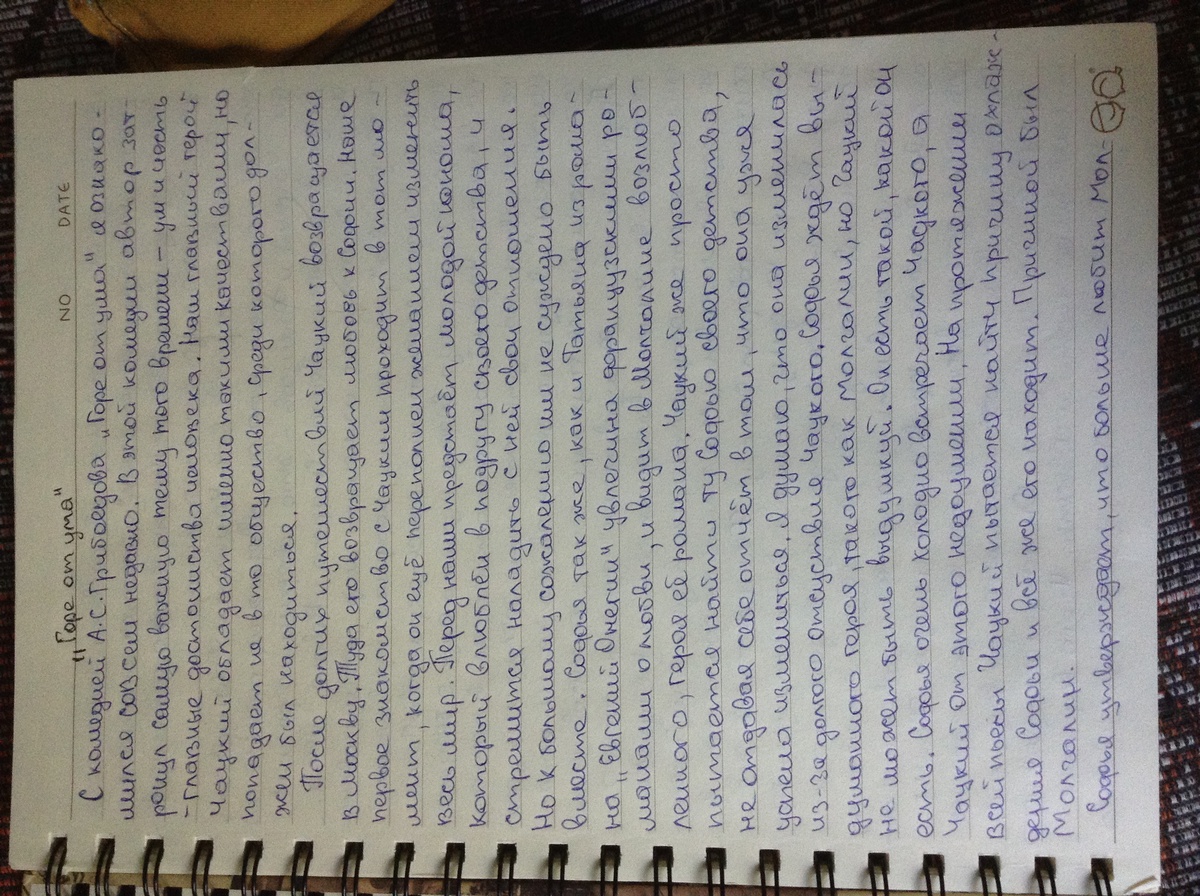 NO DATE
"Горе от ума"
С комедией А.С.Грибоедова „Горе от ума" я ознако-
мился совсем недавно. В этой комедии автор зат-
ронул самую важную тему того времени – ум и честь
- главные достоинства человека. Наш главный герой
Чацкий обладает именно такими качествами, но
попадает не в то общество, среди которого дол-
жен был находиться.
После долгих путешествий Чацкий возвращается
в Москву. Туда его возвращает любовь к Софии. Наше
первое знакомство с Чацким проходит в тот мо-
мент, когда он ещё переполнен желанием изменить
весь мир. Перед нами предстаёт молодой юноша,
который влюблён в подругу своего детства, и
стремится наладить с ней свои отношения.
Но к большому сожалению им не суждено быть
вместе. Софья так же, как и Татьяна из рома-
на „Евгений Онегин" увлечена французскими ро-
манами о любви, и видит в Молчалине возлюб-
ленного, героя её романа. Чацкий же просто
пытается найти ту Софью своего детства,
не отдавая себе отчёт в том, что она уже
успела измениться. Я думаю, что она изменилась
из-за долгого отсутствия Чацкого. Софья ждёт вы-
думанного героя, такого как Молчалин, но Чацкий
не может быть выдумкой. Он есть такой, какой он
есть. Софья очень холодно встречает Чацкого, а
Чацкий от этого недоумении. На протяжении
всей пьесы Чацкий пытается найти причину охлаж-
дения Софьи и всё же его находит. Причиной был
Молчалин.
Софья утверждает, что больше любит Мол-